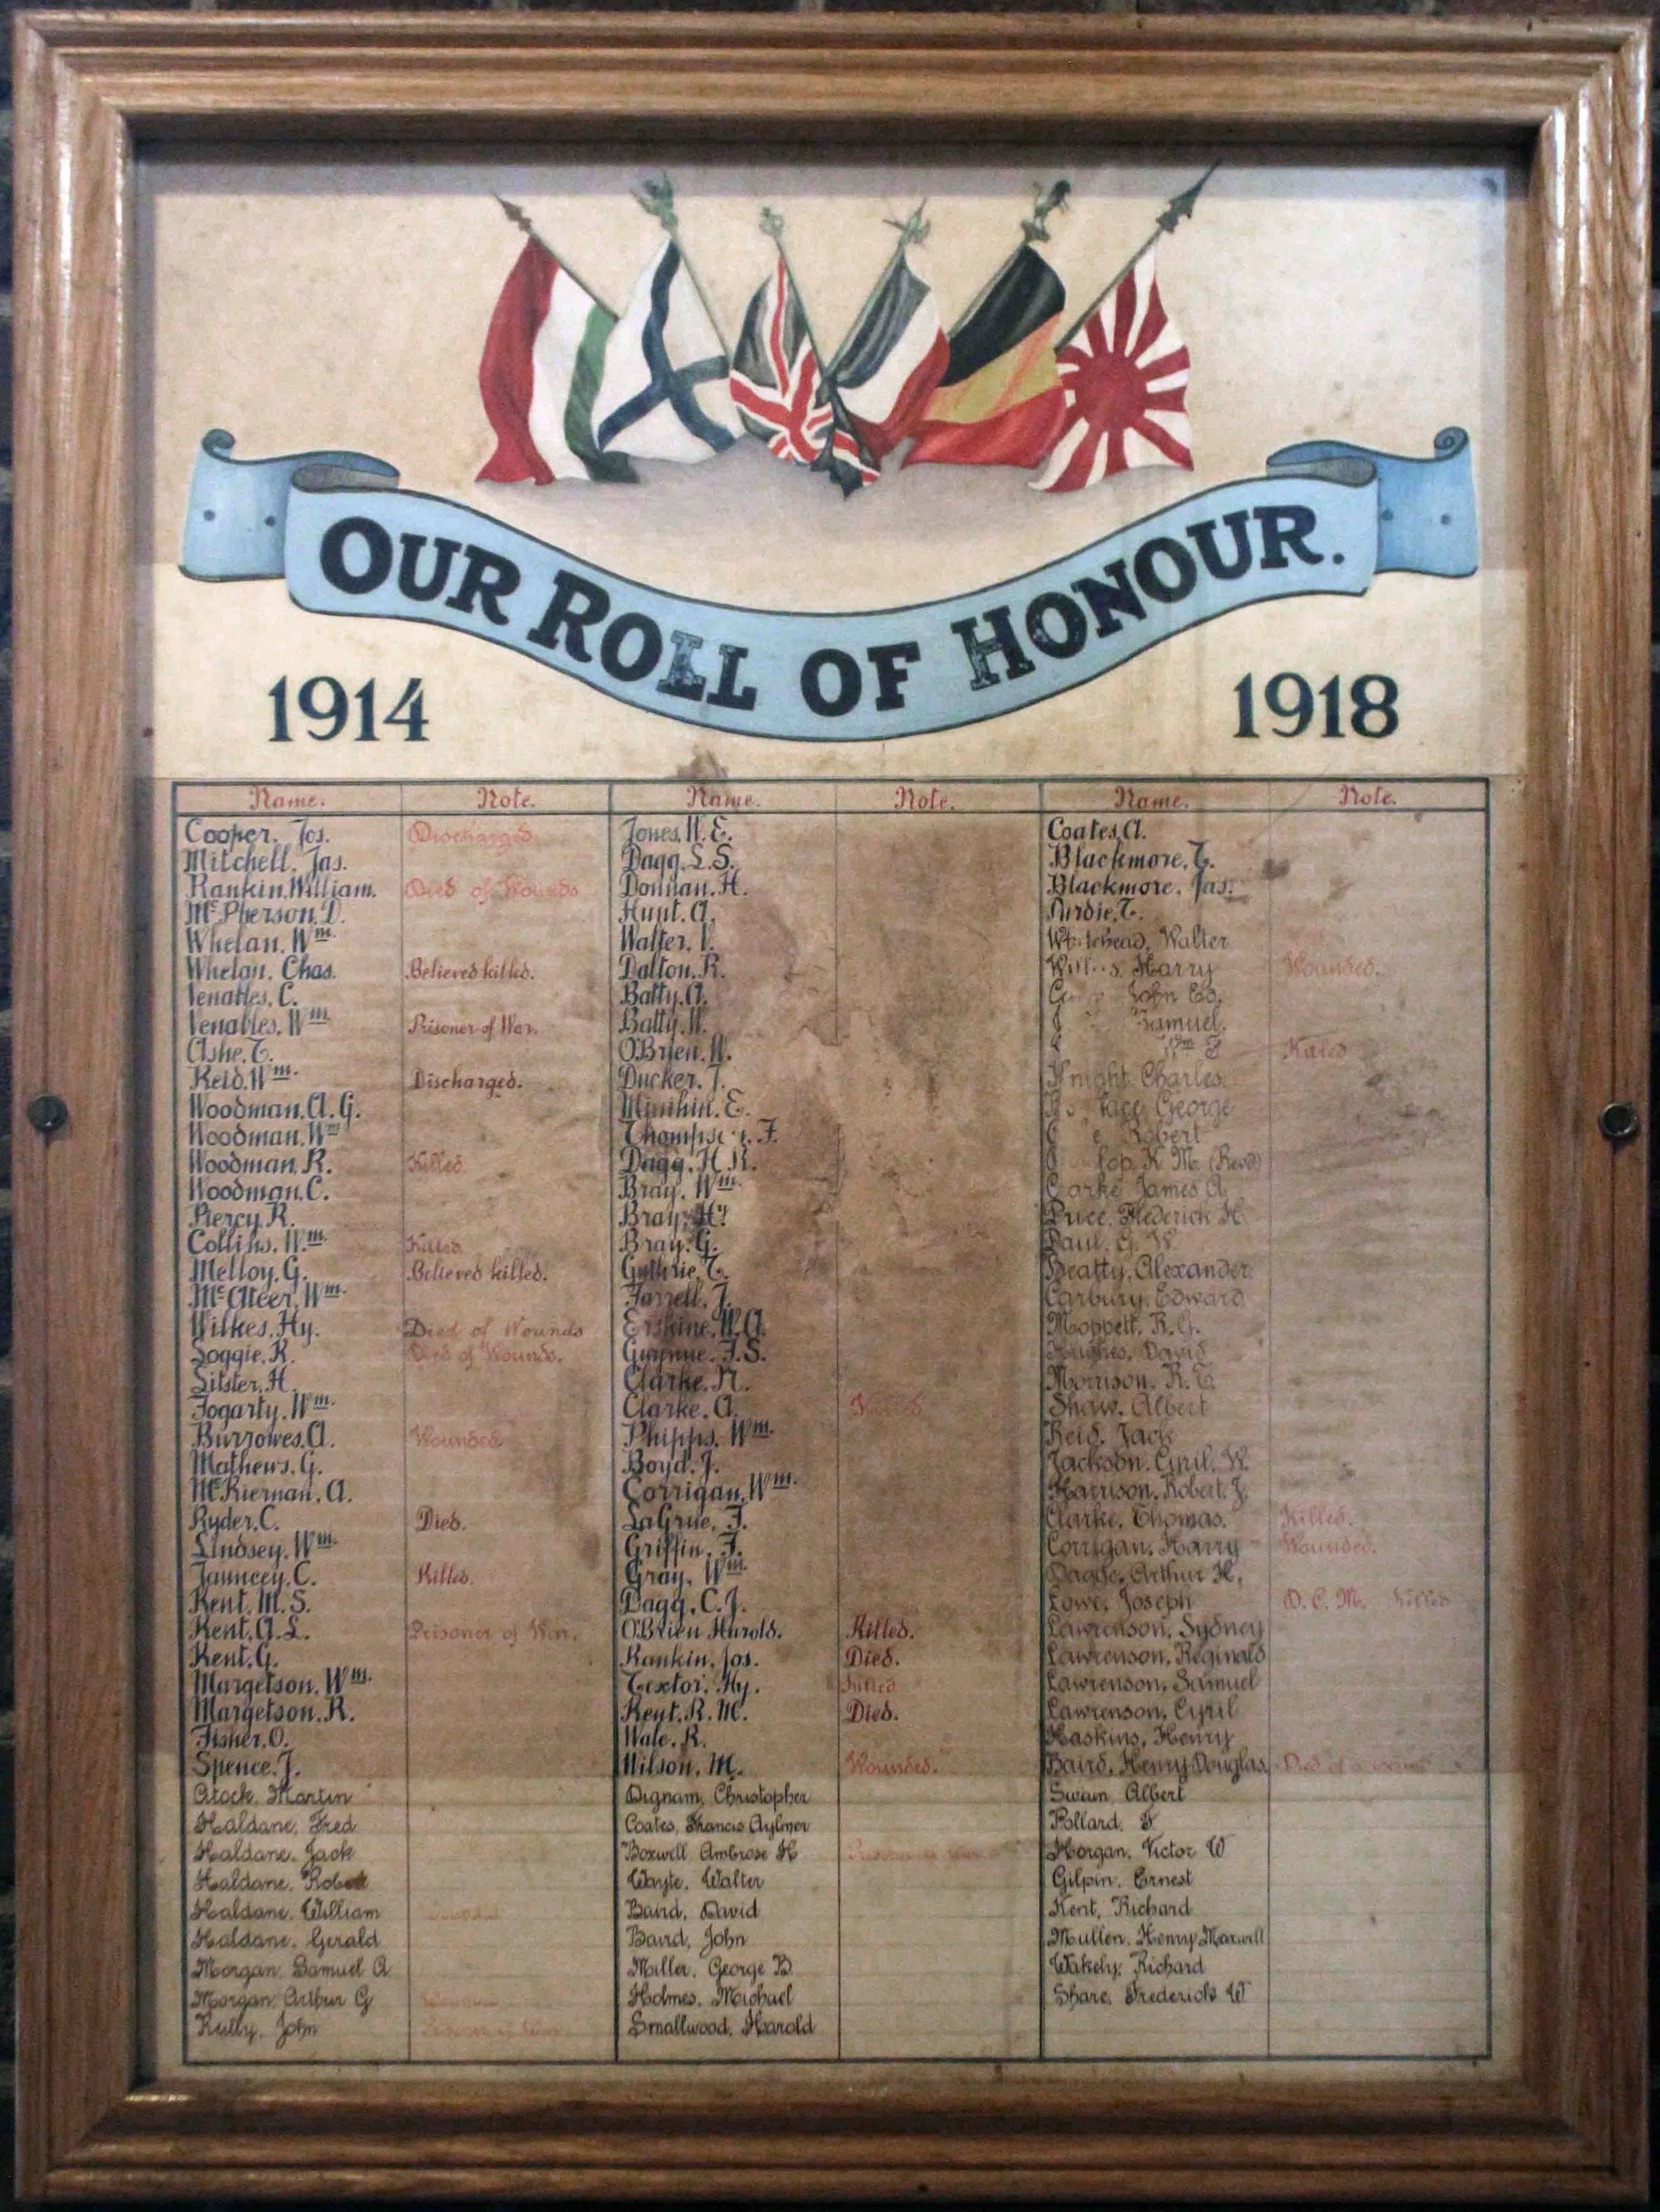 OUR ROLL OF HONOUR.
1914 1918
Name. Note. Name. Note. Name. Note.
Cooper. Jos. Discharged
Mitchell. Jas.
Rankin. William. Died of Wounds
McPherson. D.
Whelan. Wm.
Whelan. Chas. Believed killed.
Venables. C.
Venables. Wm Prisoner of War.
Ashe. T.
Reid. Wm. Discharged.
Woodman. A. G.
Woodman. Wm
Woodman. R. Killed.
Woodman. C.
Piercy. R.
Collins. Wm. Killed
Melloy. G. Believed killed.
McAteer. Wm.
Wilkes. Hy. Died of Wounds
Soggie. R. Died of Wounds.
Sitster. H.
Fogarty. Wm.
Burrowes. A. Wounded
Mathews. G.
McKiernan. A.
Ryder. C. Died.
Lindsey. Wm.
Jauncey. C. Killed.
Kent. M. S.
Kent. A. L. Prisoner of War.
Kent. G.
Margetson. Wm.
Margetson. R.
Fisher. O.
Spence. J.
Atock. Martin
Haldane. Fred
Haldane. Jack
Haldane. Robert
Haldane. William
Haldane. Gerald
Morgan. Samuel A
Morgan. Arthur G
Kelly. John Prisoner of War
Jones. W. E.
Dagg. L. S.
Donnan. H.
Hunt. A.
Walter. V.
Dalton. R.
Batty. A.
Batty. W.
O'Brien. W.
Ducker. J.
Minihin. E.
Thompson. F.
Dagg. H. R.
Bray. Wm.
Bray. Hy.
Bray. G.
Guthrie. T.
Farrell. J.
Erskine. W. A.
Gwynne. J. S.
Clarke. R.
Clarke. A.
Phipps. Wm.
Boyd. J.
Corrigan. Wm.
LaGrue. F.
Griffin. J.
Gray. Wm.
Dagg. C. J.
O'Brien Harold. Killed.
Rankin. Jos. Died.
Textor. Hy. Killed
Kent. R. M. Died.
Wale. R.
Wilson. M. Wounded.
Dignam, Christopher
Coates, Francis Aylmer
Boxwell Ambrose H Prisoner of War
Wayte. Walter
Baird. David
Baird, John
Miller. George B.
Holmes. Michael
Smallwood, Harold
Coates. A.
Blackmore. T.
Blackmore. Jas.
Purdie. T.
Whitehead, Walter
Harry Wounded.
John Ed.
Samuel.
Killed
Knight. Charles.
George
Robert
K. M. (Revd)
Clarke James A.
Price. Frederick H.
Paul. G. W.
Beatty, Alexander
Carbury. Edward
Moppett. R. G.
Hughes. David
Morrison. R. T.
Shaw. Albert
Reid. Jack
Jackson. Cyril. W.
Harrison. Robert. J.
Clarke. Thomas. Killed.
Corrigan. Harry Wounded.
Arthur H.
Lowe. Joseph D. C. M. Killed
Lawrenson. Sydney
Lawrenson. Reginald
Lawrenson. Samuel
Lawrenson. Cyril
Haskins. Henry
Baird. Henry Douglas. Died of
Swain, Albert
Pollard. F
Morgan. Victor W
Gilpin. Ernest
Kent, Richard
Mullen. Henry Maxwell
Wakely. Richard
Share. Frederick W